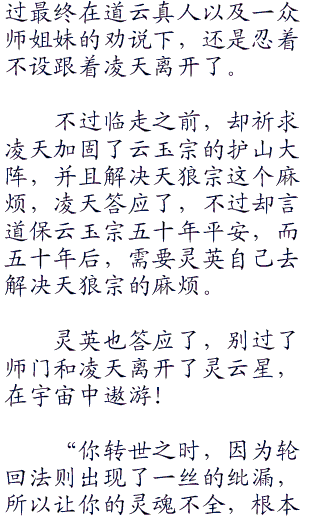 过最终在道云真人以及一众
师姐妹的劝说下，还是忍着
不设跟着凌天离开了。
不过临走之前，却祈求
凌天加固了云玉宗的护山大
阵，并且解决天狼宗这个麻
烦，凌天答应了，不过却言
道保云玉宗五十年平安，而
五十年后，需要灵英自己去
解决天狼宗的麻烦。
灵英也答应了，别过了
师门和凌天离开了灵云星，
在宇宙中遨游！
“你转世之时，因为轮
回法则出现了一丝的纰漏，
所以让你的灵魂不全，根本